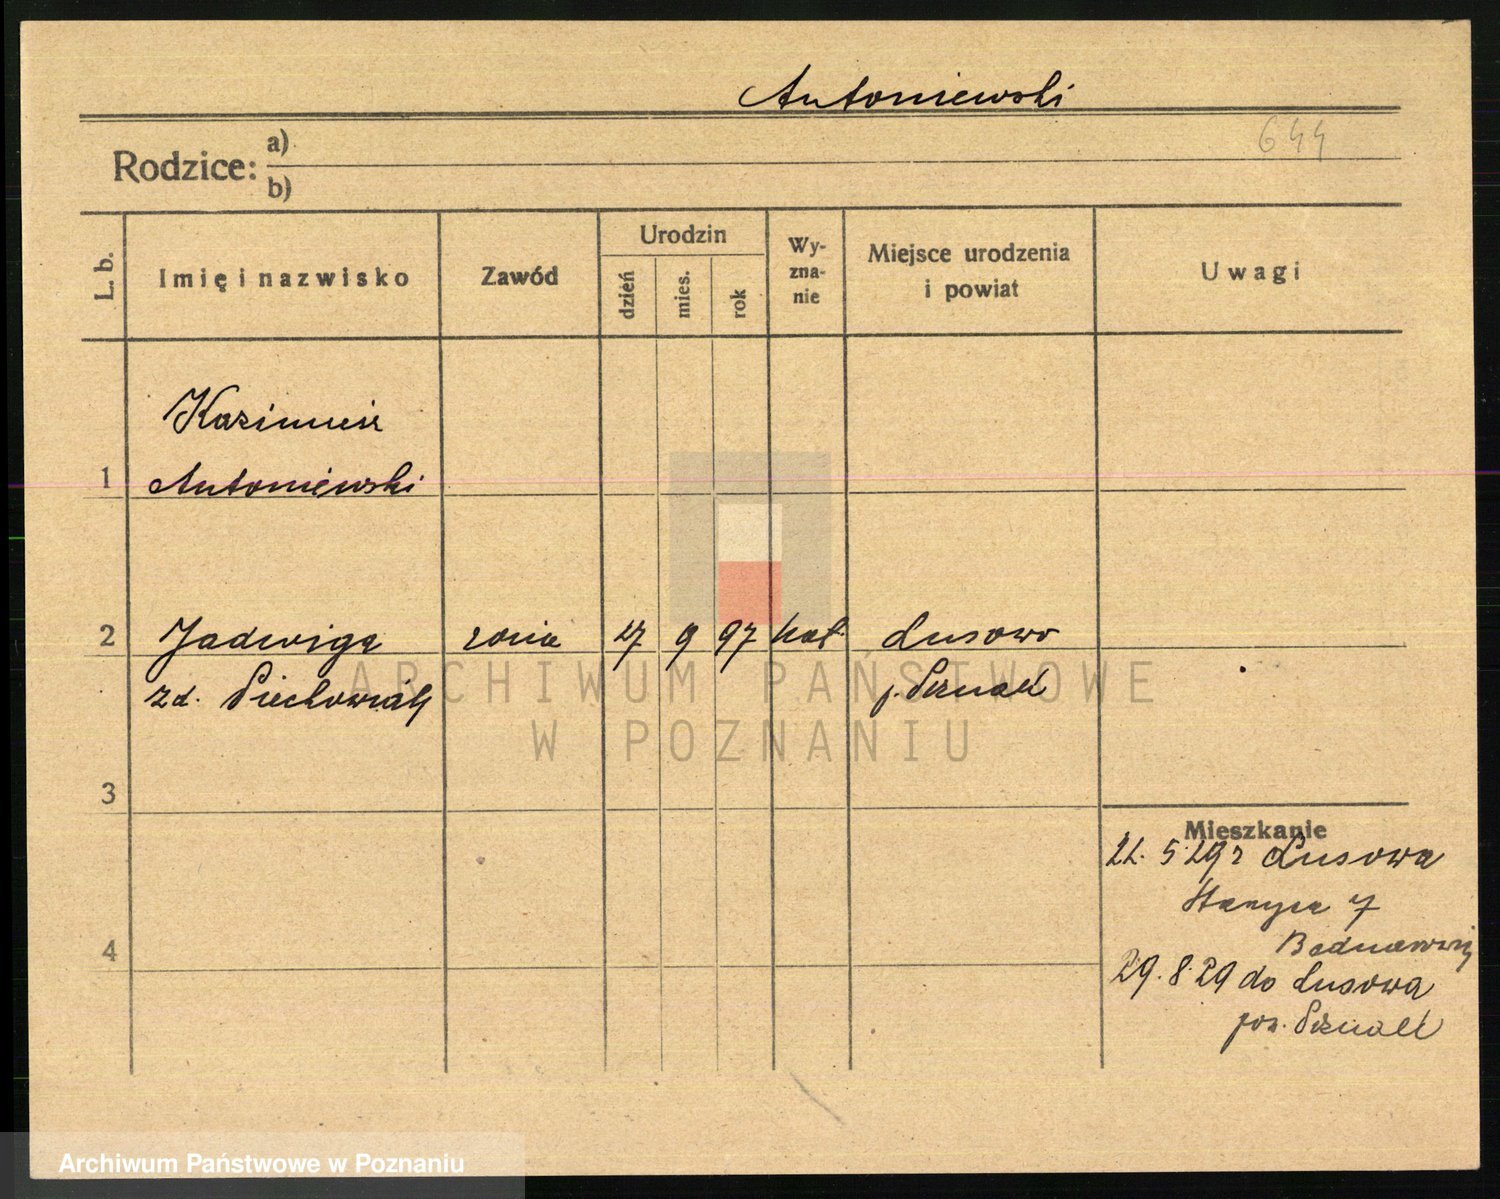 Antoniewski
644
Rodzice: a)
b)
L. b.
Imię i nazwisko
Zawód
Urodzin
dzień
mies.
rok
Wy-
zna-
nie
Miejsce urodzenia
i powiat
Uwagi
Kazimierz
1 Antoniewski
2 Jadwiga żona 27 9 97 kat. Lusowo
zd. Piechowiak p. Poznań
3
4
Mieszkanie
22. 5 29 z Lusowa
7
29. 8 29 do Lusowa
Poznań
ARCHIWUM PAŃSTWOWE
W POZNANIU
Archiwum Państwowe w Poznaniu